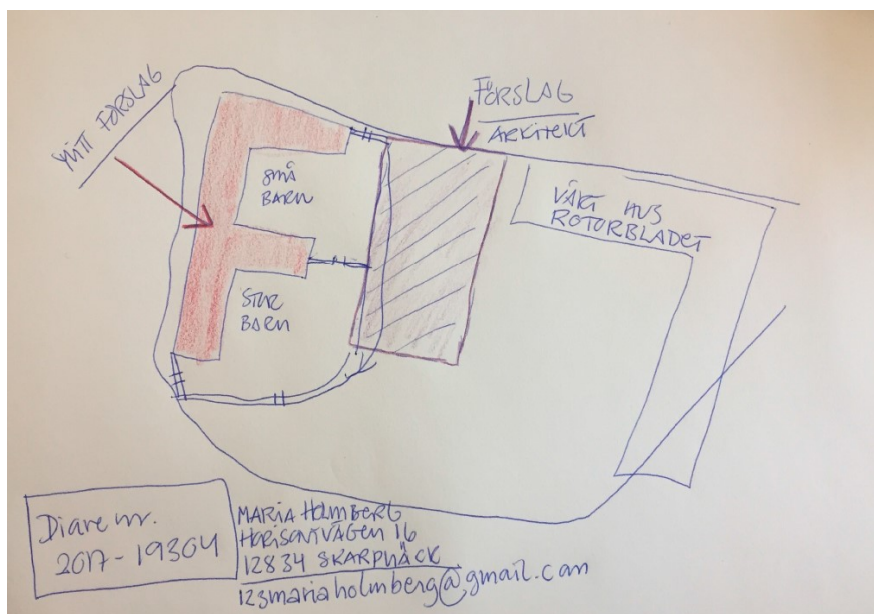 MITT FÖRSLAG
FÖRSLAG
ARKITEKT
SMÅ
BARN
VÅRT HUS
ROTORBLADET
STOR
BARN
Diare nr.
2017-19304
MARIA HOLMBERG
HORISONTVÄGEN 16
12834 SKARPNÄCK
123mariaholmberg@gmail.com